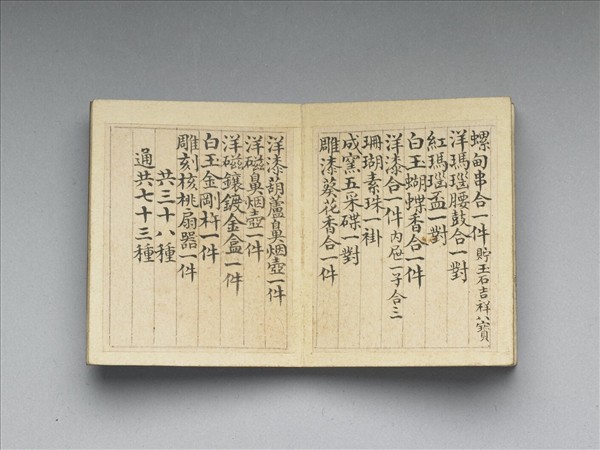 螺甸串合一件 貯玉石吉祥八寶
洋瑪瑙腰鼓合一對
紅瑪瑙盃一對
白玉蝴蝶香合一件
洋漆合一件 內屜一子合三
珊瑚素珠一褂
成窯五采碟一對
雕漆葵花香合一件
洋漆葫蘆鼻烟壺一件
洋磁鼻烟壺一件
洋磁鑲鍍金盒一件
白玉金剛杵一件
雕刻核桃扇器一件
共三十八種
通共七十三種